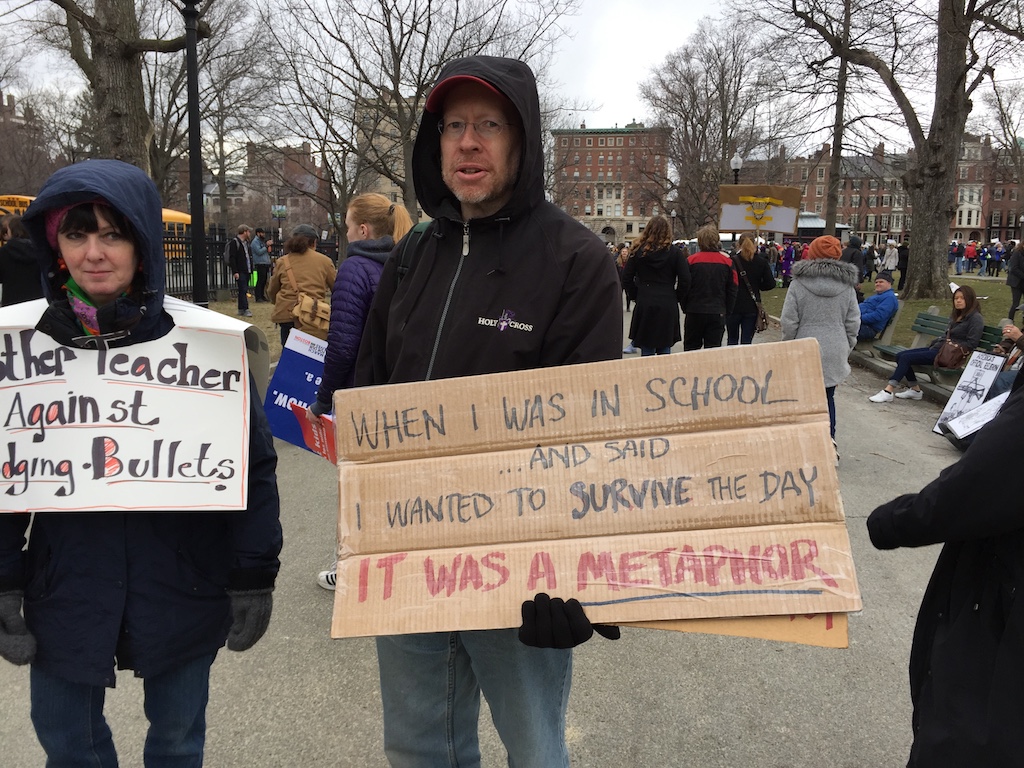 SCHOOL BUS
other Teacher
Against
dging-Bullets
HOLY CROSS
WHEN I WAS IN SCHOOL
...AND SAID
I WANTED TO SURVIVE THE DAY
IT WAS A METAPHOR
NOW.
kids